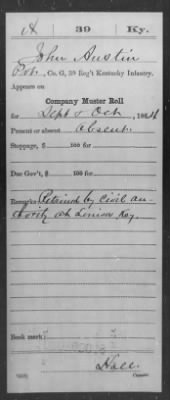 A 39 Ky.
John Austin
Pvt., Co. G, 39 Reg't Kentucky Infantry.
Appears on
Company Muster Roll
for Sept & Oct, 1864
Present or absent Absent
Stoppage, $ 100 for
Due Gov't, $ 100 for
Remarks: Retained by civil au-
thority at Louisa Ky.
Book mark:
Hall
Copyist.